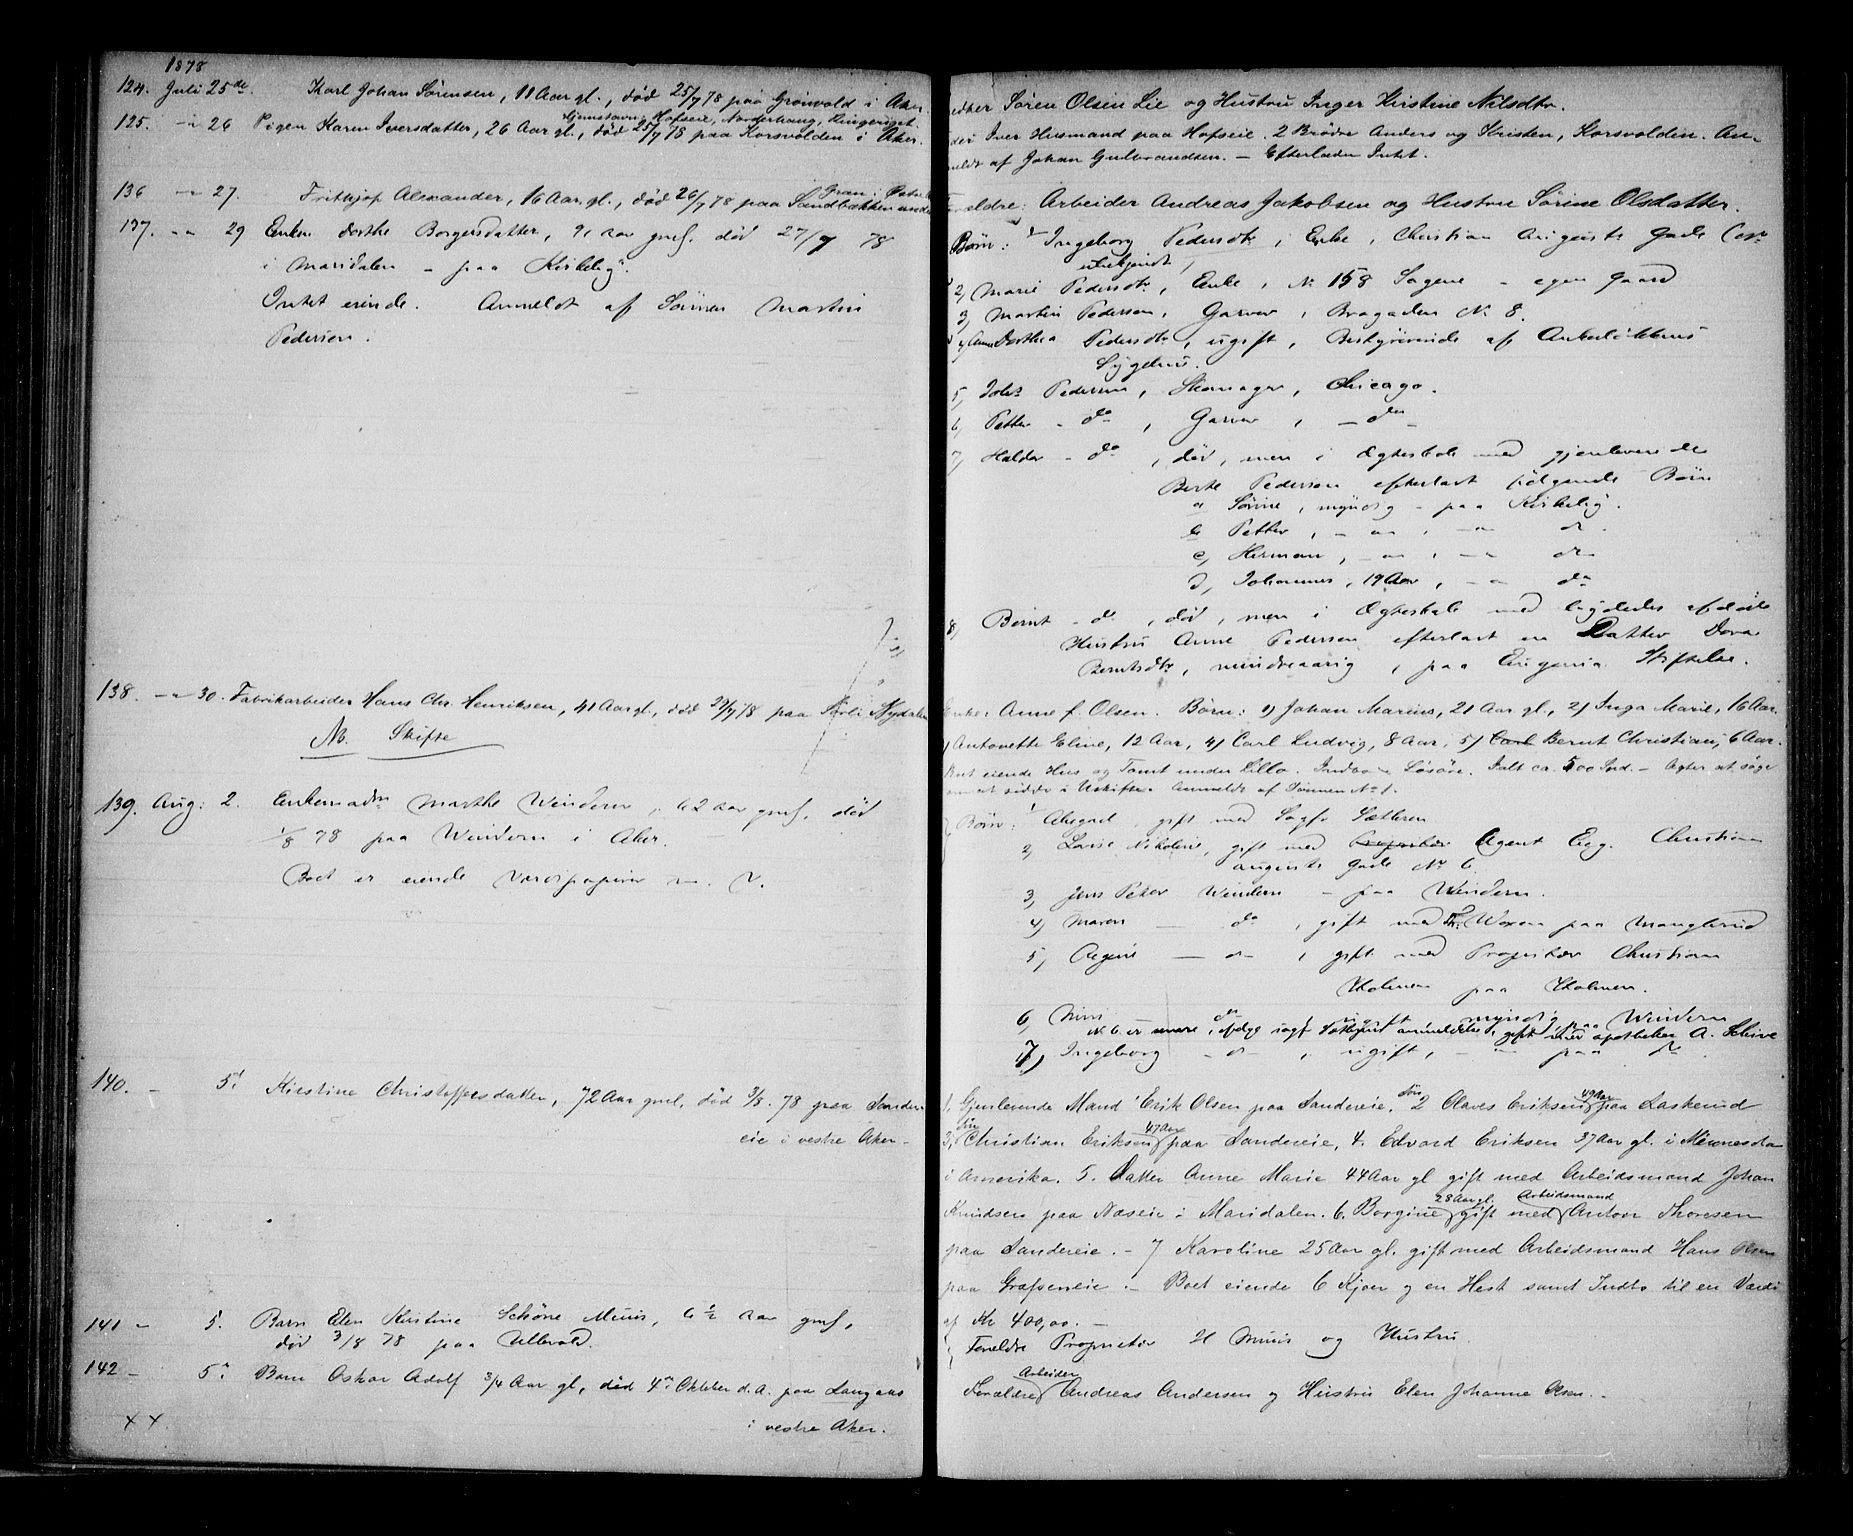 1878
124. Juli 25de. Karl Johan Sørensen, 11 Aar gl., død 25/7 78 paa Grönvold i Aker.
Søren Olsen Lie og Hustru Inger Kirstine Nilsdtr.
Hjemstavn: Hofseie, Norderhaug, Ringeriget.
125. -"- 26 Pigen Karen Iversdatter, 26 Aar gl., død 25/7 78 paa Korsvolden i Aker.
Iver Husmand paa Hofseie. 2 Brødre Anders og Kristen, Korsvolden. An-
meldt af Johan Gulbrandsen. – Efterlader Intet.
136 -"- 27. Frithjof Alexander, 16 Aar gl., død 26/7 78 paa Sandbakken
Forældre: Arbeider Andreas Jakobsen og Hustru Sørine Olsdatter.
137. -"- 29 Enken Dorthe Borgersdatter, 91 aar gml. død 27/7 78
i Maridalen – paa Kirkelig.
Intet eiende. Anmeldt af Sønnen Martin
Pedersen.
Børn: 1, Ingeborg Pedersdtr, Enke, Christian Augusts Gade
ubekjendt,
2, Marie Pedersdtr, Enke, No 158 Sagene – egen Gaard
3, Martin Pedersen, Garver, Brogaden No 8.
4, Anne Dorthea Pedersdtr, ugift, Bestyrerinde af Ankerløkkens
Sygehus.
5, Johs Pedersen, Skomager, Chicago.
6, Petter – do, Garver, – do –
7, Halvor – do, død, men i Ægteskab med gjenlevende
Berte Pedersen efterladt følgende Børn
a Sørine, myndig – paa Kirkelig.
b Petter, – " – , – " do
c, Herman, – " – , – " do
d, Johannes, 19 Aar, – " do
8, Bernt – do, død, men i Ægteskab med ligeledes afdøde
Hustru Anne Pedersen efterladt en Datter Dora
Berntsdtr, mindreaarig, paa Eugenia Stiftelse.
138. -"- 30. Fabrikarbeider Hans Chr. Henriksen, 41 Aar gl., død 29/7 78 paa Nydalen
NB. Skifte
Enke: Anne f. Olsen. Børn: 1) Johan Marius, 21 Aar gl., 2) Inga Marie, 16 Aar.
3) Antonette Eline, 12 Aar, 4) Carl Ludvig, 8 Aar, 5) Carl Bernt Christian, 6 Aar.
Boet eiende Hus og Tomt under Lillo. Indbo Løsøre. Ialt ca. 500 – Agter at søge
om at sidde i Uskifte. Anmeldt af Sønnen No 1.
139. Aug: 2. Enkemadm Marthe Windern, 62 aar gml, død
1/8 78 paa Windern i Aker.
Boet er eiende Værdipapirer m. V.
Børn: 1, Abigael, gift med Sagfr Sæthren
2, Lovise Nikoline, gift med Proprietær Agent Egg. Christian
Augusts Gade No 6.
3, Jens Peter Windern – paa Windern.
4) Maren – do, gift med Woxen paa Manglerud
5, – do –, gift med Proprietær Christian
Holmen paa Holmen.
6, Mini do, ugift, myndig, paa Windern
No 6 er senere, ifølge anmeldelse, gift med apotheker A. Schive
7, Ingeborg – do –, ugift, – " paa do
140. – 5. Kirstine Christoffersdatter, 72 Aar gml, død 3/8. 78 paa Sander
eie i vestre Aker.
1, Gjenlevende Mand Erik Olsen paa Sandereie. Søn 2 Olaves Eriksen 49 Aar paa Laskerud
3, Søn Christian Eriksen 47 Aar paa Sandereie, 4. Edvard Eriksen 37 Aar gl. i Minnesota
i Amerika. 5. Datter Anne Marie 44 Aar gl gift med Arbeidsmand Johan
28 Aar gl. Arbeidsmand
Knudsen paa Næseie i Maridalen. 6. Borgine gift med Anton Thoresen
paa Sandereie. – 7 Karoline 25 Aar gl. gift med Arbeidsmand Hans Olsen
paa Græfsenseie. – Boet eiende 6 Kjøer og en Hest samt Indbo til en Værdi
af Kr 400,00. –
141 – 5. Barn Elen Kirstine Schöne Muus, 6 1/2 aar gml,
død 3/8 78 paa Ullevold.
Forældre Proprietær H Muus og Hustru.
142 – 5. Barn Oskar Adolf 3/4 Aar gl, død 4de Oktober d.A. paa Langaas
i vestre Aker.
Arbeider
Forældre Andreas Andersen og Hustru Elen Johanne Olsen.
× ×